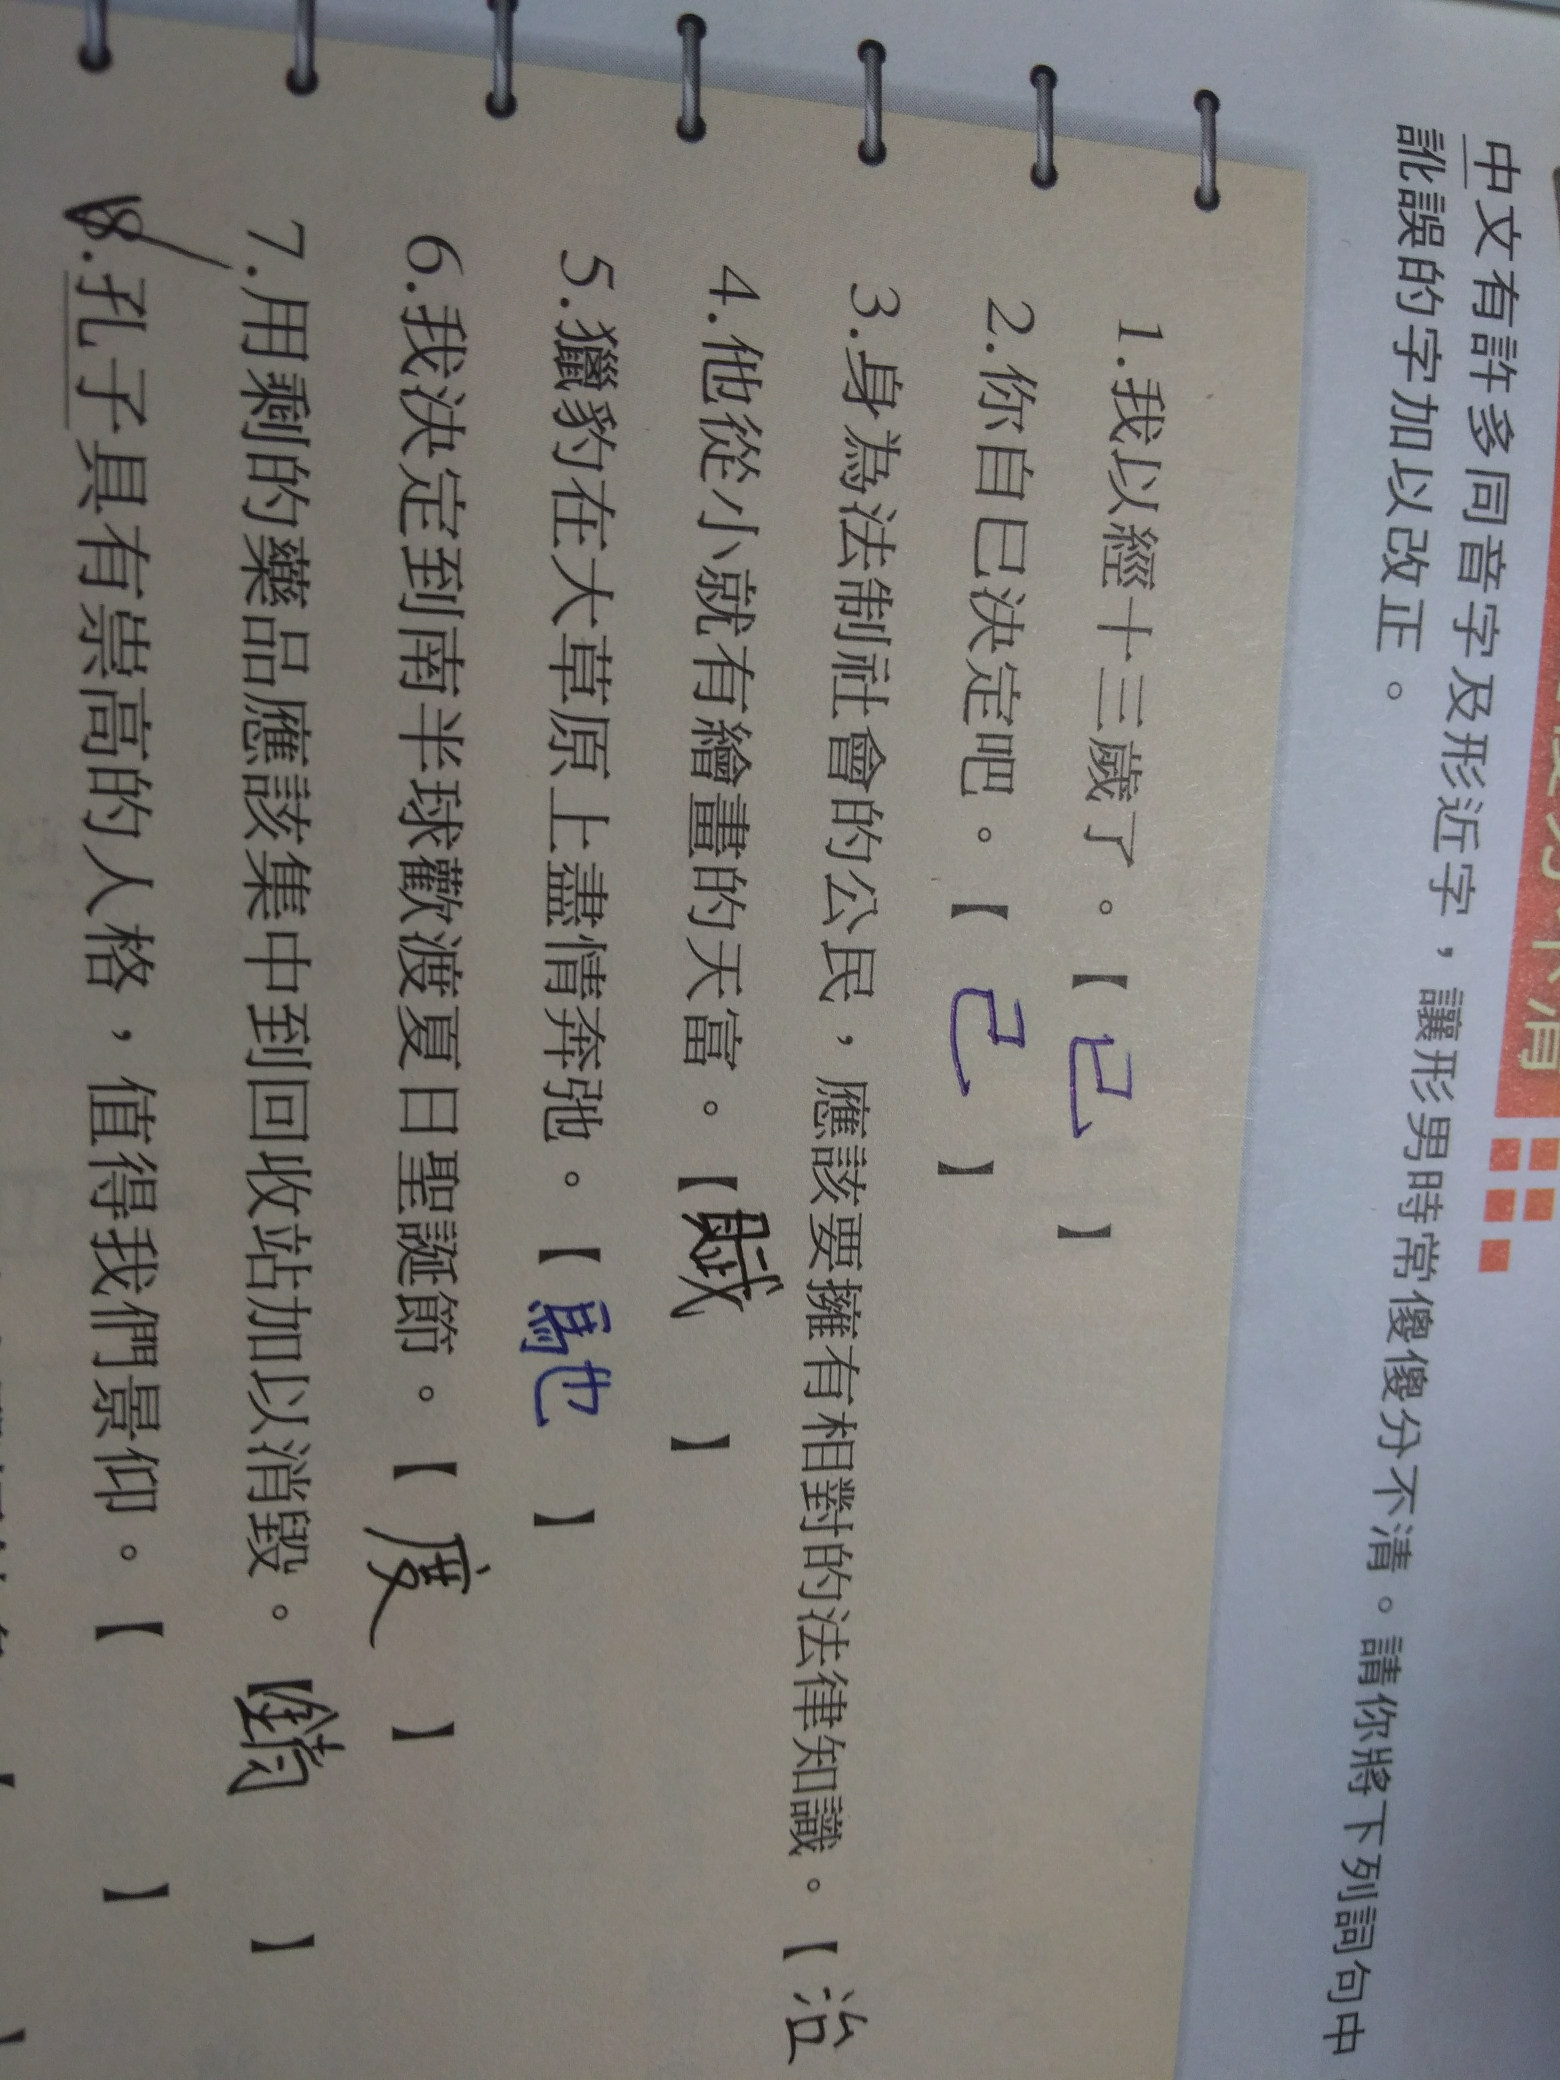 中文有許多同音字及形近字，讓形男時常傻傻分不清。請你將下列詞句中
訛誤的字加以改正。
1.我以經十三歲了。【 已 】
2.你自已決定吧。【 己 】
3.身為法制社會的公民，應該要擁有相對的法律知識。【 治
4.他從小就有繪畫的天富。【賦 】
5.獵豹在大草原上盡情奔弛。【 馳 】
6.我決定到南半球歡渡夏日聖誕節。【 度 】
7.用剩的藥品應該集中到回收站加以消毀。【銷 】
8.孔子具有崇高的人格，值得我們景仰。【 】